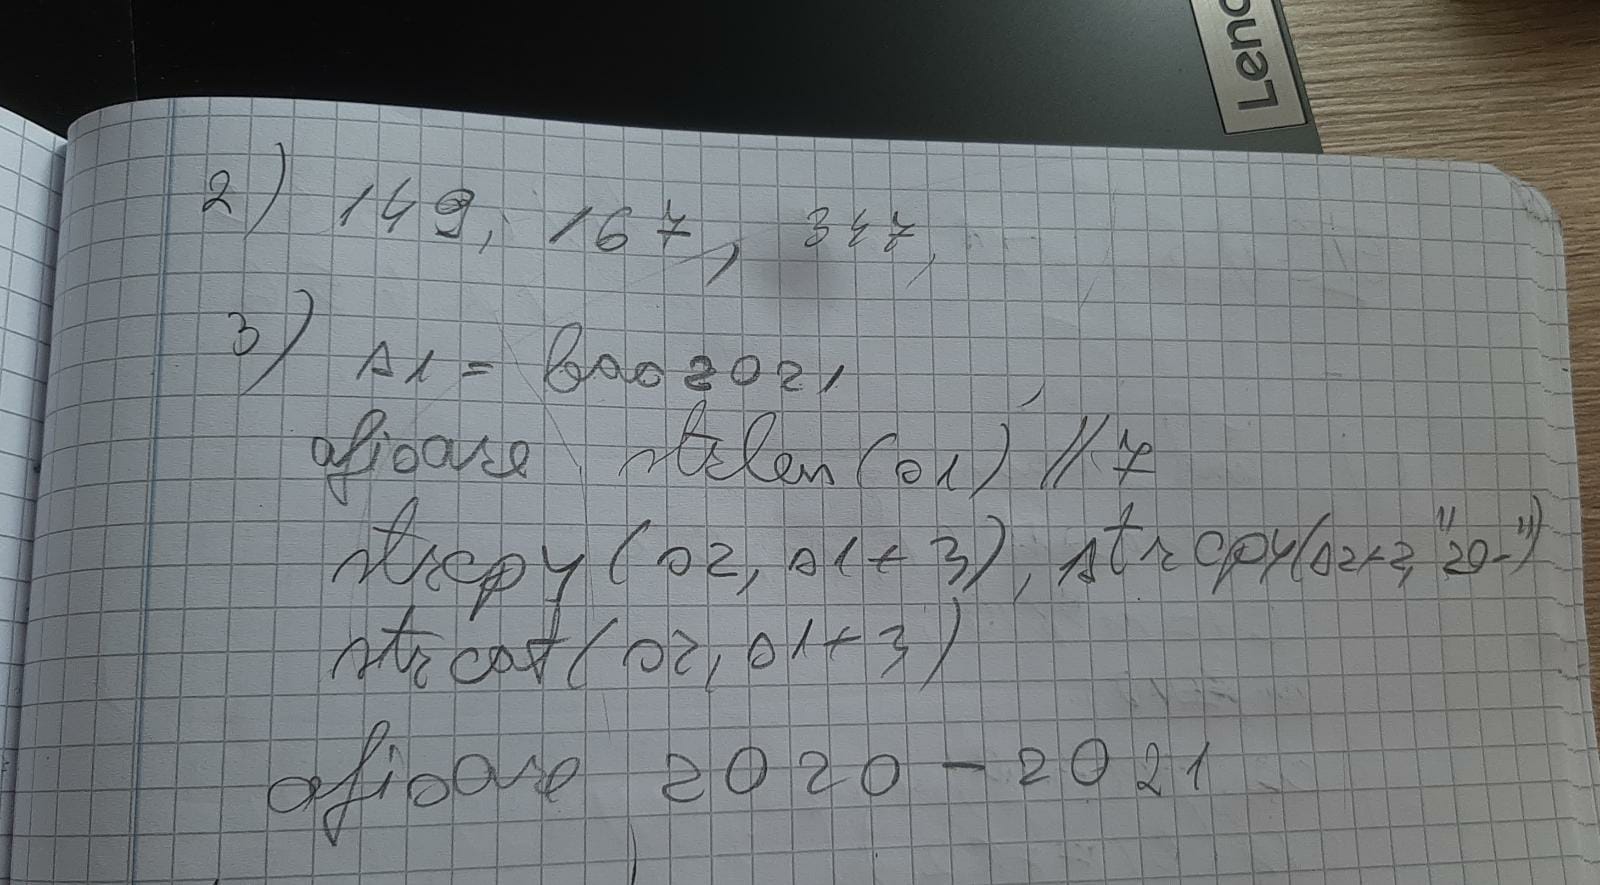 Leno
2) 149, 167, 347,
3) s1 = bac2021,
afișare strlen(s1) // 7
strcpy(s2, s1+3), strcpy(s2+2, "20-")
strcat(s2, s1+3)
afișare 2020-2021